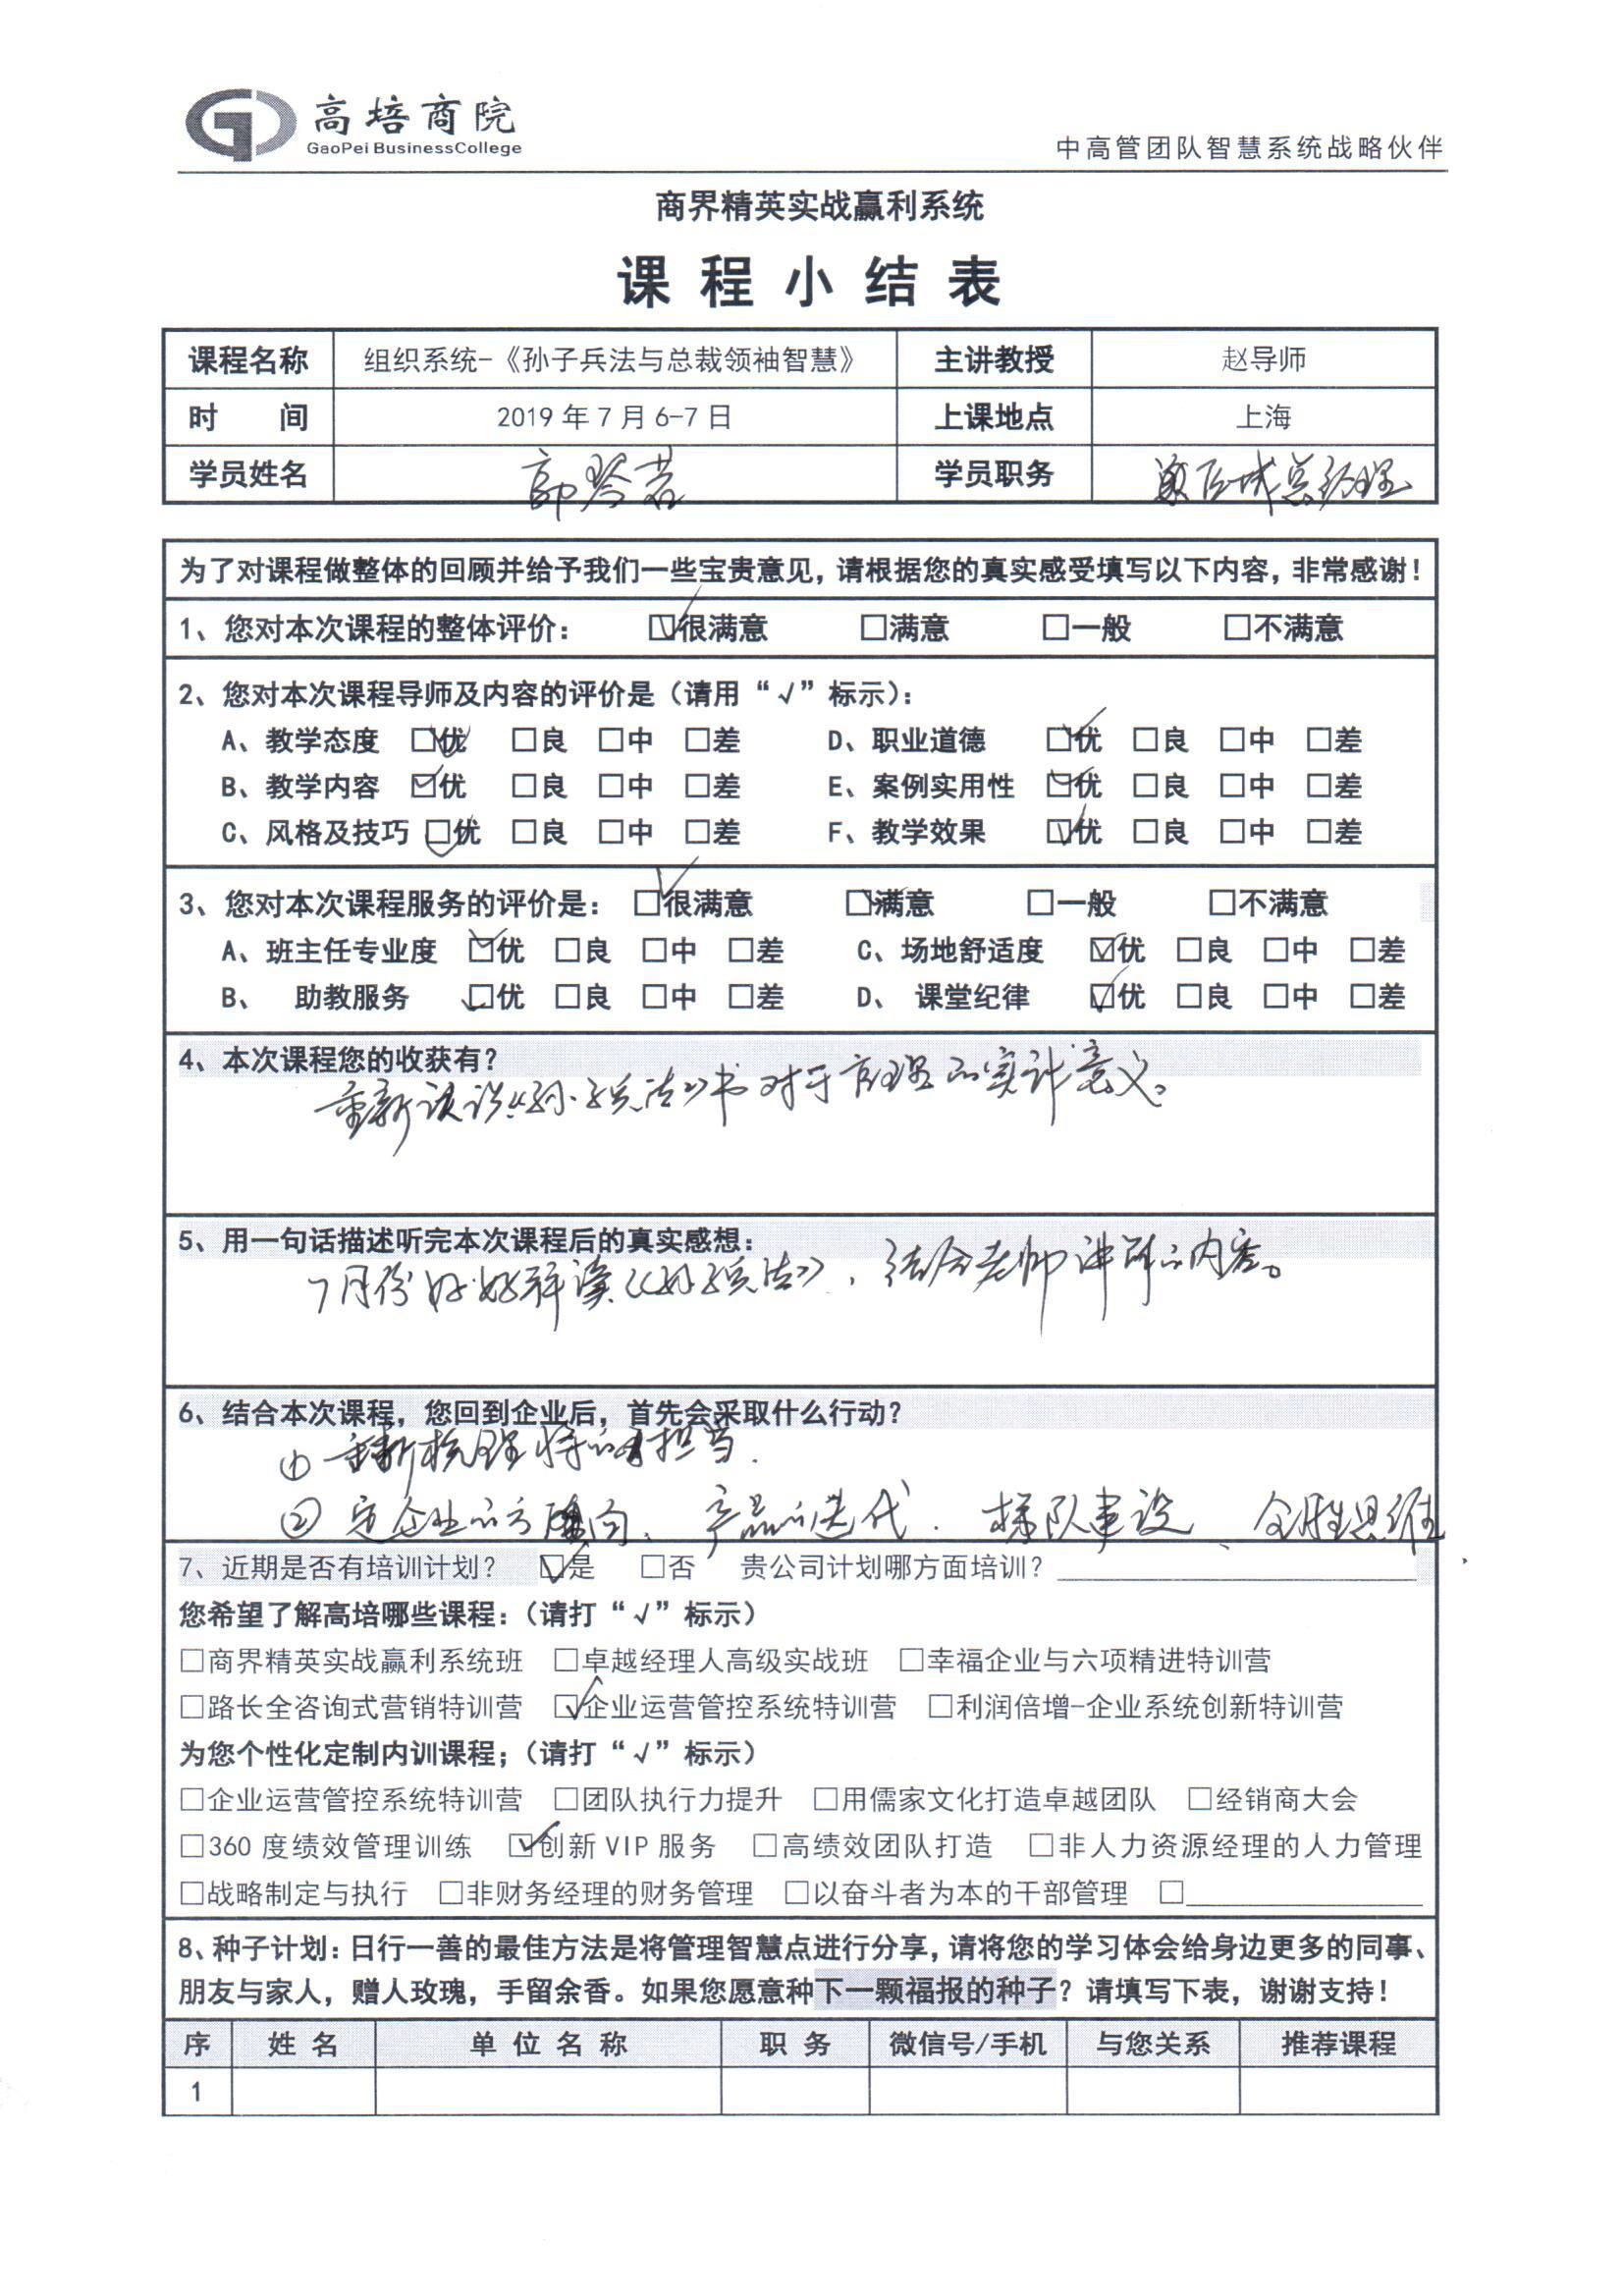 高培商院
GaoPei BusinessCollege
中高管团队智慧系统战略伙伴
商界精英实战赢利系统
课程小结表
课程名称 组织系统-《孙子兵法与总裁领袖智慧》 主讲教授 赵导师
时 间 2019年7月6-7日 上课地点 上海
学员姓名 郭琴若 学员职务 区域总经理
为了对课程做整体的回顾并给予我们一些宝贵意见，请根据您的真实感受填写以下内容，非常感谢！
1、您对本次课程的整体评价： ☑很满意 □满意 □一般 □不满意
2、您对本次课程导师及内容的评价是（请用“√”标示）：
A、教学态度 ☑优 □良 □中 □差 D、职业道德 ☑优 □良 □中 □差
B、教学内容 ☑优 □良 □中 □差 E、案例实用性 ☑优 □良 □中 □差
C、风格及技巧 ☑优 □良 □中 □差 F、教学效果 ☑优 □良 □中 □差
3、您对本次课程服务的评价是： ☑很满意 ☑满意 □一般 □不满意
A、班主任专业度 ☑优 □良 □中 □差 C、场地舒适度 ☑优 □良 □中 □差
B、 助教服务 ☑优 □良 □中 □差 D、 课堂纪律 ☑优 □良 □中 □差
4、本次课程您的收获有？
重新认识《孙子兵法》书对于管理的实际意义。
5、用一句话描述听完本次课程后的真实感想：
7月份好好拜读《孙子兵法》，结合老师讲解的内容。
6、结合本次课程，您回到企业后，首先会采取什么行动？
① 重新梳理将的担当.
② 定企业的方向、产品的迭代. 梯队建设、全胜思维.
7、近期是否有培训计划？ ☑是 □否 贵公司计划哪方面培训？
您希望了解高培哪些课程：（请打“√”标示）
□商界精英实战赢利系统班 □卓越经理人高级实战班 □幸福企业与六项精进特训营
□路长全咨询式营销特训营 ☑企业运营管控系统特训营 □利润倍增-企业系统创新特训营
为您个性化定制内训课程；（请打“√”标示）
□企业运营管控系统特训营 □团队执行力提升 □用儒家文化打造卓越团队 □经销商大会
□360度绩效管理训练 ☑创新VIP服务 □高绩效团队打造 □非人力资源经理的人力管理
□战略制定与执行 □非财务经理的财务管理 □以奋斗者为本的干部管理 □
8、种子计划：日行一善的最佳方法是将管理智慧点进行分享，请将您的学习体会给身边更多的同事、
朋友与家人，赠人玫瑰，手留余香。如果您愿意种下一颗福报的种子？请填写下表，谢谢支持！
序 姓名 单位名称 职务 微信号/手机 与您关系 推荐课程
1